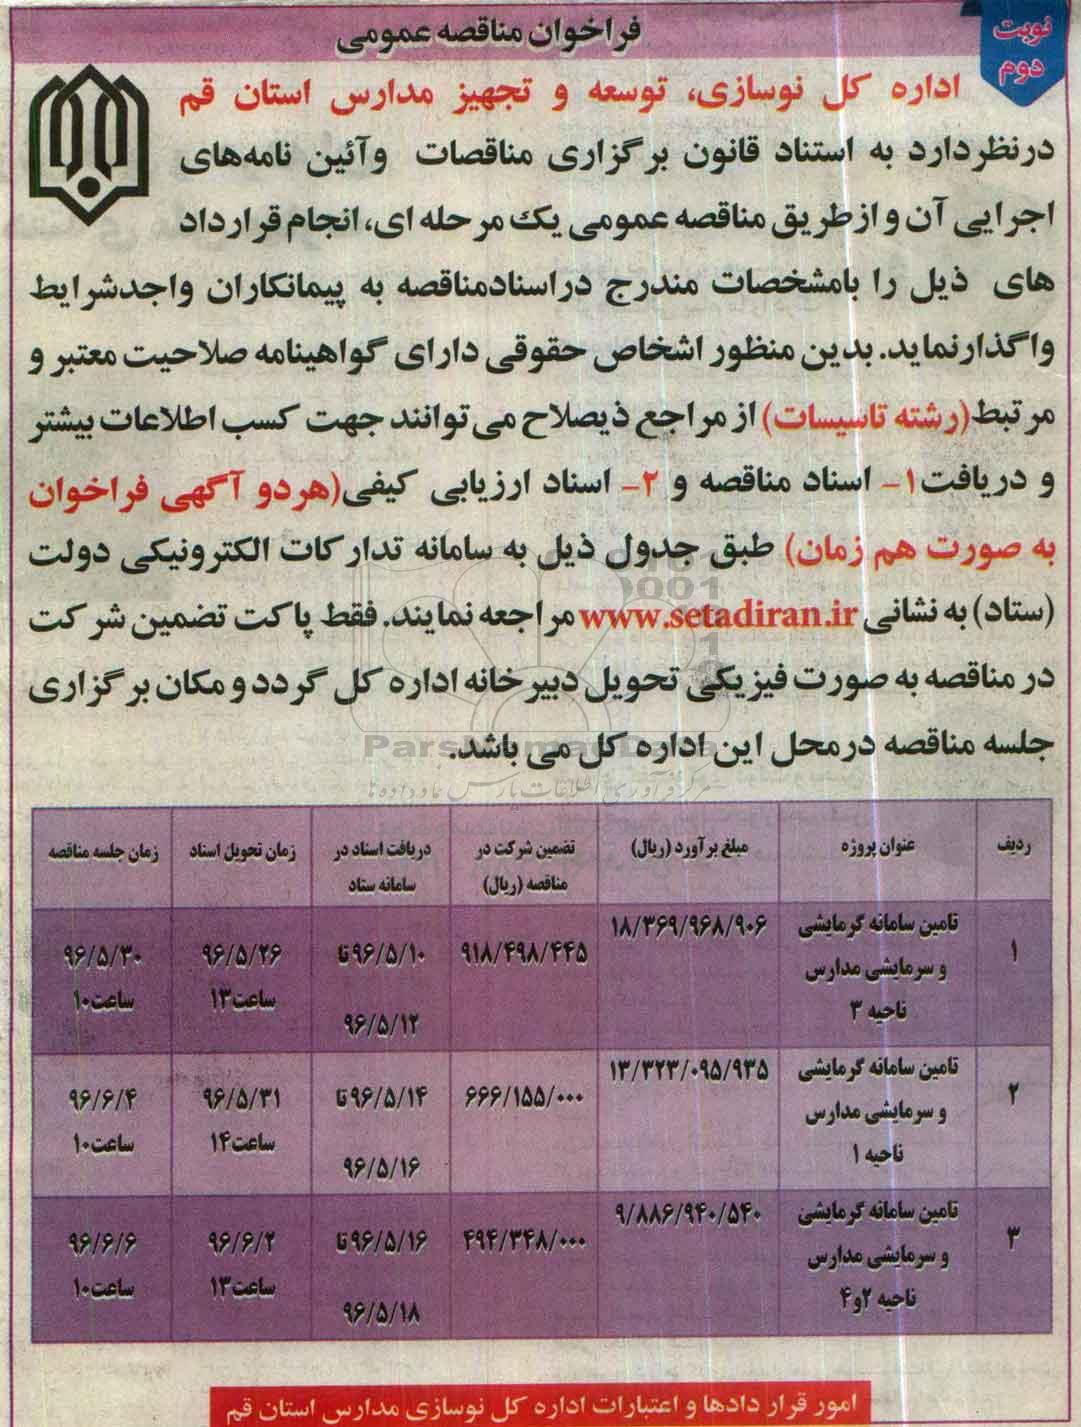 فراخوان مناقصه عمومی
نوبت
دوم
اداره کل نوسازی، توسعه و تجهیز مدارس استان قم
درنظردارد به استناد قانون برگزاری مناقصات وآئین نامه‌های
اجرایی آن و ازطریق مناقصه عمومی یک مرحله ای، انجام قرارداد
های ذیل را بامشخصات مندرج دراسنادمناقصه به پیمانکاران واجدشرایط
واگذارنماید. بدین منظور اشخاص حقوقی دارای گواهینامه صلاحیت معتبر و
مرتبط(رشته تاسیسات) از مراجع ذیصلاح می‌توانند جهت کسب اطلاعات بیشتر
و دریافت۱- اسناد مناقصه و ۲- اسناد ارزیابی کیفی(هردو آگهی فراخوان
به صورت هم زمان) طبق جدول ذیل به سامانه تدارکات الکترونیکی دولت
(ستاد) به نشانی www.setadiran.ir مراجعه نمایند. فقط پاکت تضمین شرکت
در مناقصه به صورت فیزیکی تحویل دبیرخانه اداره کل گردد و مکان برگزاری
جلسه مناقصه درمحل این اداره کل می باشد.
ParsNamadData
مرکز فرآوری اطلاعات پارس نماد داده ها
ردیف عنوان پروژه مبلغ برآورد (ریال) تضمین شرکت در مناقصه (ریال) دریافت اسناد در سامانه ستاد زمان تحویل اسناد زمان جلسه مناقصه
۱ تامین سامانه گرمایشی و سرمایشی مدارس ناحیه ۳ ۱۸/۳۶۹/۹۶۸/۹۰۶ ۹۱۸/۴۹۸/۴۴۵ ۹۶/۵/۱۰ تا ۹۶/۵/۱۲ ۹۶/۵/۲۶ ساعت۱۳ ۹۶/۵/۳۰ ساعت۱۰
۲ تامین سامانه گرمایشی و سرمایشی مدارس ناحیه ۱ ۱۳/۳۲۳/۰۹۵/۹۳۵ ۶۶۶/۱۵۵/۰۰۰ ۹۶/۵/۱۴ تا ۹۶/۵/۱۶ ۹۶/۵/۳۱ ساعت۱۴ ۹۶/۶/۴ ساعت۱۰
۳ تامین سامانه گرمایشی و سرمایشی مدارس ناحیه ۲و۴ ۹/۸۸۶/۹۴۰/۵۴۰ ۴۹۴/۳۴۸/۰۰۰ ۹۶/۵/۱۶ تا ۹۶/۵/۱۸ ۹۶/۶/۲ ساعت۱۳ ۹۶/۶/۶ ساعت۱۰
امور قرار دادها و اعتبارات اداره کل نوسازی مدارس استان قم